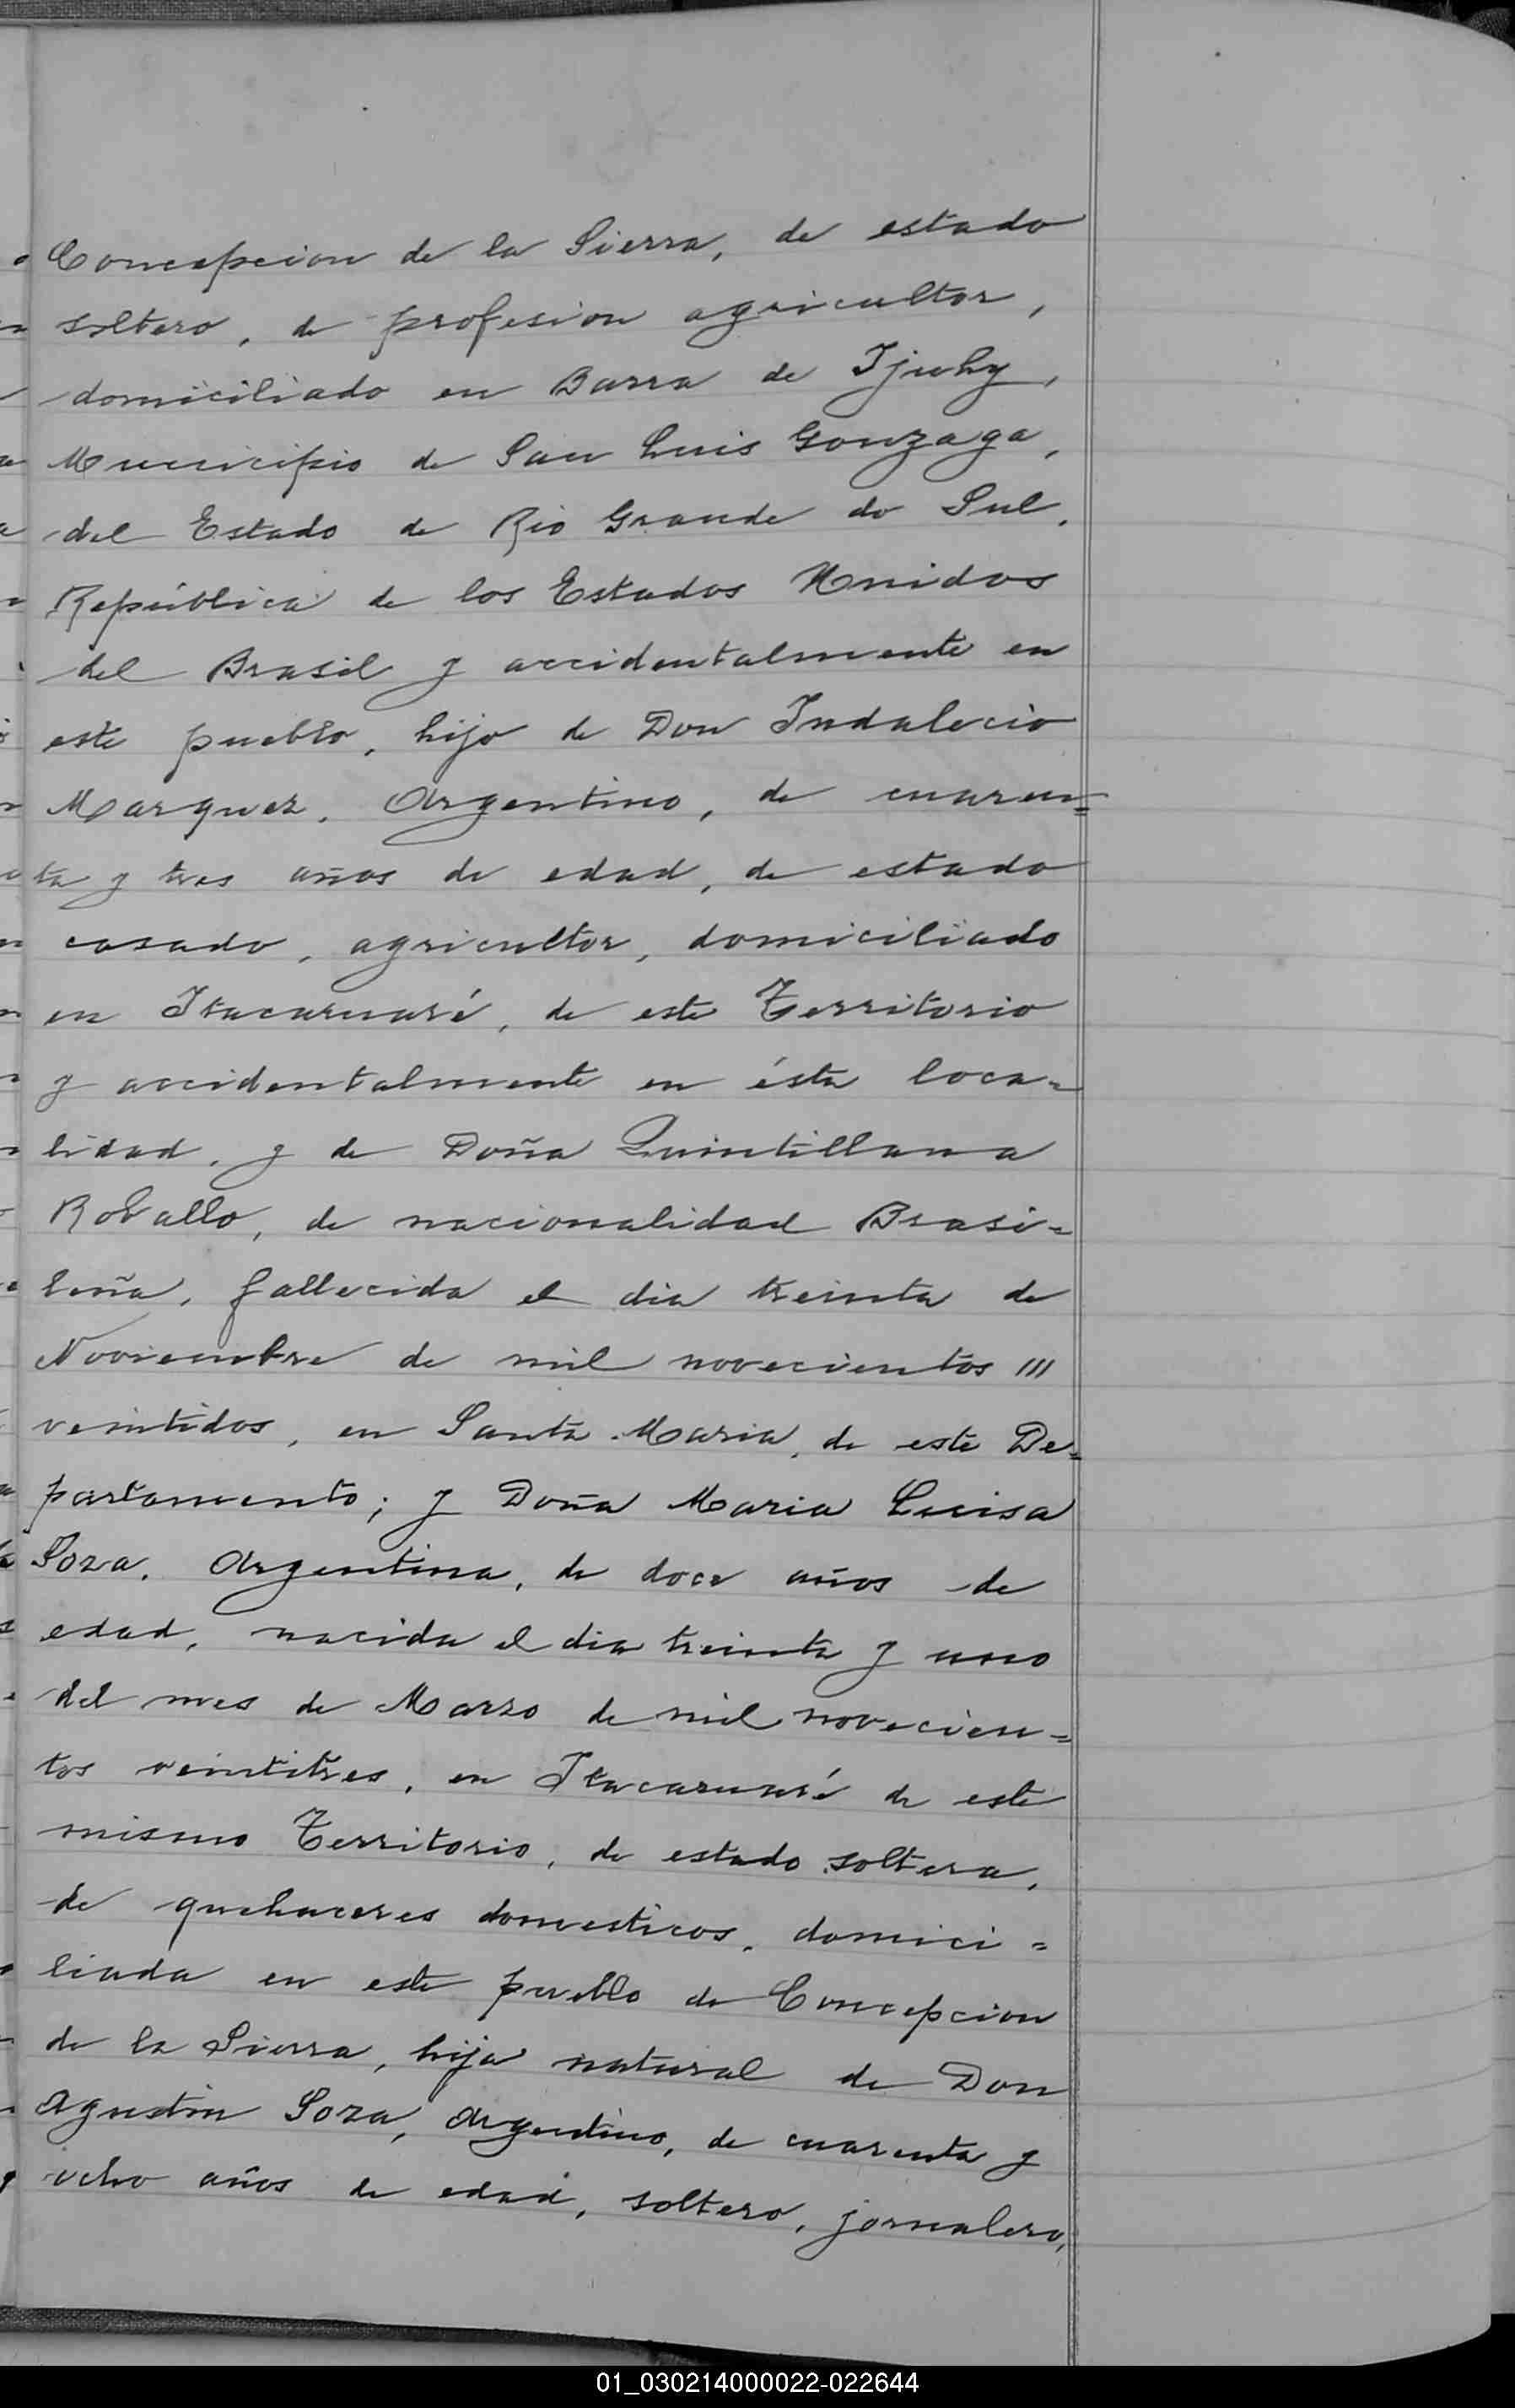 Concepcion de la Sierra, de estado
soltero, de profesion agricultor,
domiciliado en Barra de Ijuhy,
Municipio de San Luis Gonzaga,
del Estado de Rio Grande do Sul,
República de los Estados Unidos
del Brasil y accidentalmente en
este pueblo, hijo de Don Indalecio
Marquez, Argentino, de cuaren=
ta y tres años de edad, de estado
casado, agricultor, domiciliado
en Itacaruaré, de este Territorio
y accidentalmente en ésta loca=
lidad, y de Doña Quintillana
Roballo, de nacionalidad Brasi=
leña, fallecida el dia treinta de
Noviembre de mil novecientos
veintidos, en Santa Maria, de este De=
partamento; y Doña Maria Luisa
Soza, Argentina, de doce años de
edad, nacida el dia treinta y uno
del mes de Marzo de mil novecien=
tos veintitres, en Itacaruaré de este
mismo Territorio, de estado soltera,
de quehaceres domesticos, domici=
liada en este pueblo de Concepcion
de la Sierra, hija natural de Don
Agustin Soza, Argentino, de cuarenta y
ocho años de edad, soltero, jornalero,
01_030214000022-022644